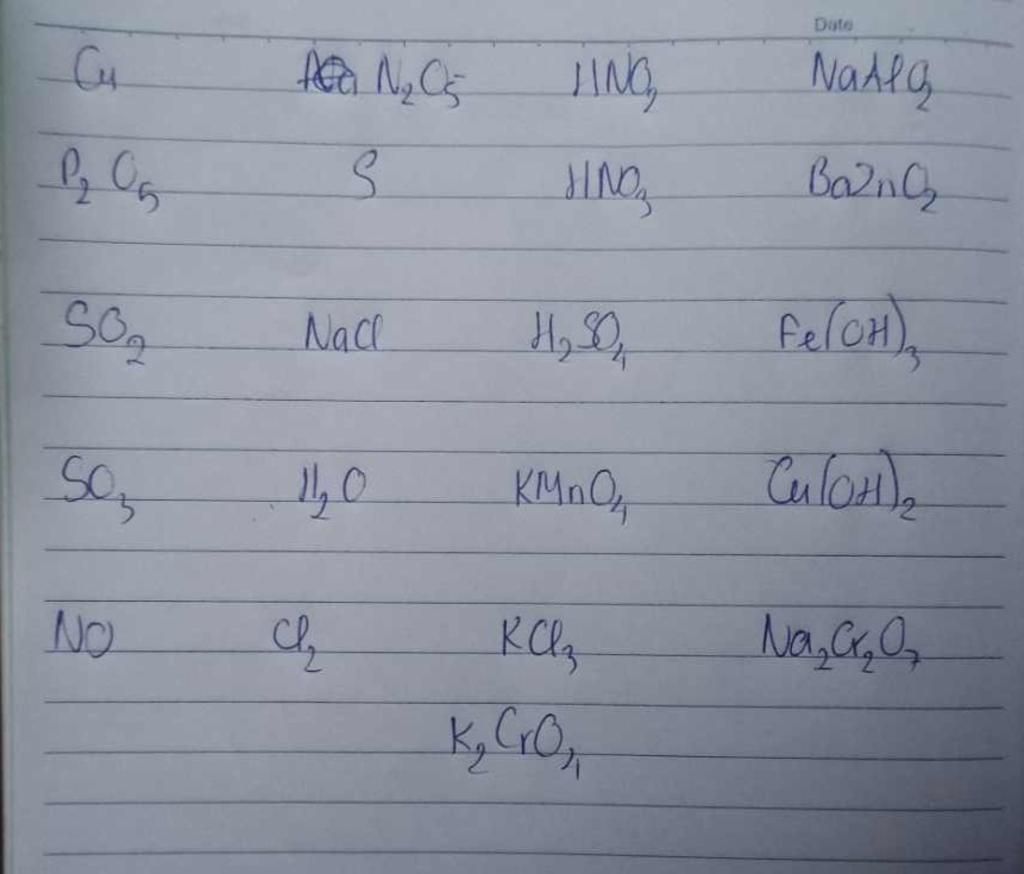 Date
Cu N₂O₅ HNO₃ NaAlO₂
P₂O₅ S HNO₃ BaZnO₂
SO₂ NaCl H₂SO₄ Fe(OH)₃
SO₃ H₂O KMnO₄ Cu(OH)₂
NO Cl₂ KCl₃ Na₂Cr₂O₇
K₂CrO₄